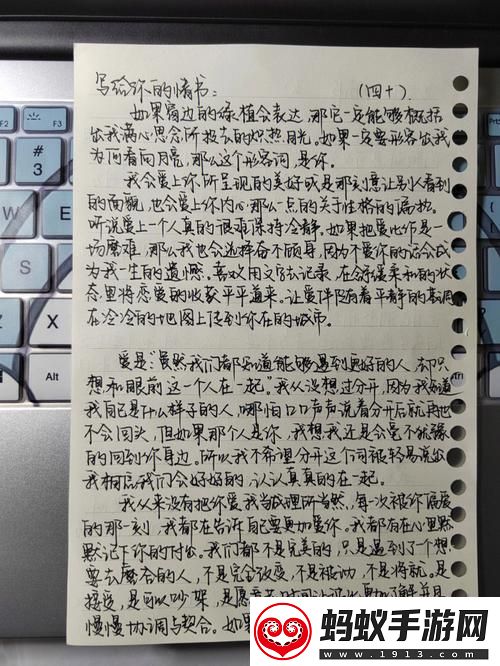 写给你的情书：（四十）
如果窗边的绿植会表达，那它一定能够概括
出我满心思念所投去的炽热目光。如果一定要形容出我
为何看向月亮，那么这个形容词，是你。
我会爱上你所呈现的美好或是那刻意让别人看到
的面貌，也会爱上你内心那么一点的关于性格的偏执。
听说爱上一个人真的很难保持冷静，如果把爱比作是一
场磨难，那么我也会选择奋不顾身，因为不爱你的话会成
为我一生的遗憾。喜欢用文字去记录，在舒缓柔和的状
态里将恋爱的收获平平道来。让爱伴随着平静的基调
在冷冷的地图上传到你在的城市。
爱是："虽然我们都知道能够遇到更好的人，却只
想和眼前这一个人在一起。"我从没想过分开，因为我知道
我自己是什么样子的人，哪怕口口声声说着分开后就再也
不会回头，但如果那个人是你，我想我还是会毫不犹豫
的回到你身边。所以我不希望分开这个词被轻易说出
我相信我们会好好的，认认真真的在一起。
我从来没有把你爱我当成理所当然，每一次被你偏爱
的那一刻，我都在告诉自己要更加爱你。我都有在心里默
默记下你的付出。我们都不是完美的，只是遇到了个想
要去磨合的人，不是完全改变，不是被动，不是将就。是
接受，是可以吵架，是愿意花时间让彼此更加了解并且
慢慢协调与契合。如果
#
3
F2
F3
Alt
Alt
Ctrl
蚂蚁手游网
www.1913.com